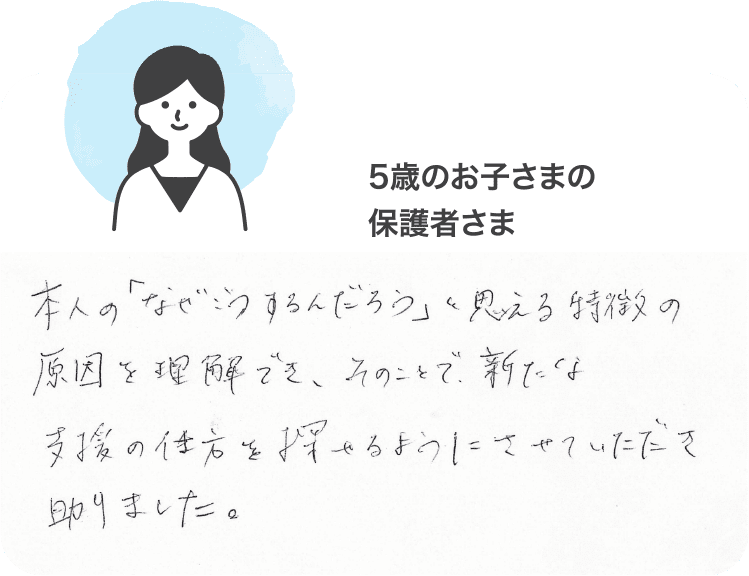 5歳のお子さまの
保護者さま
本人の「なぜこうするんだろう」と思える特徴の
原因を理解でき、そのことで、新たな
支援の仕方を探せるようにさせていただき
助りました。